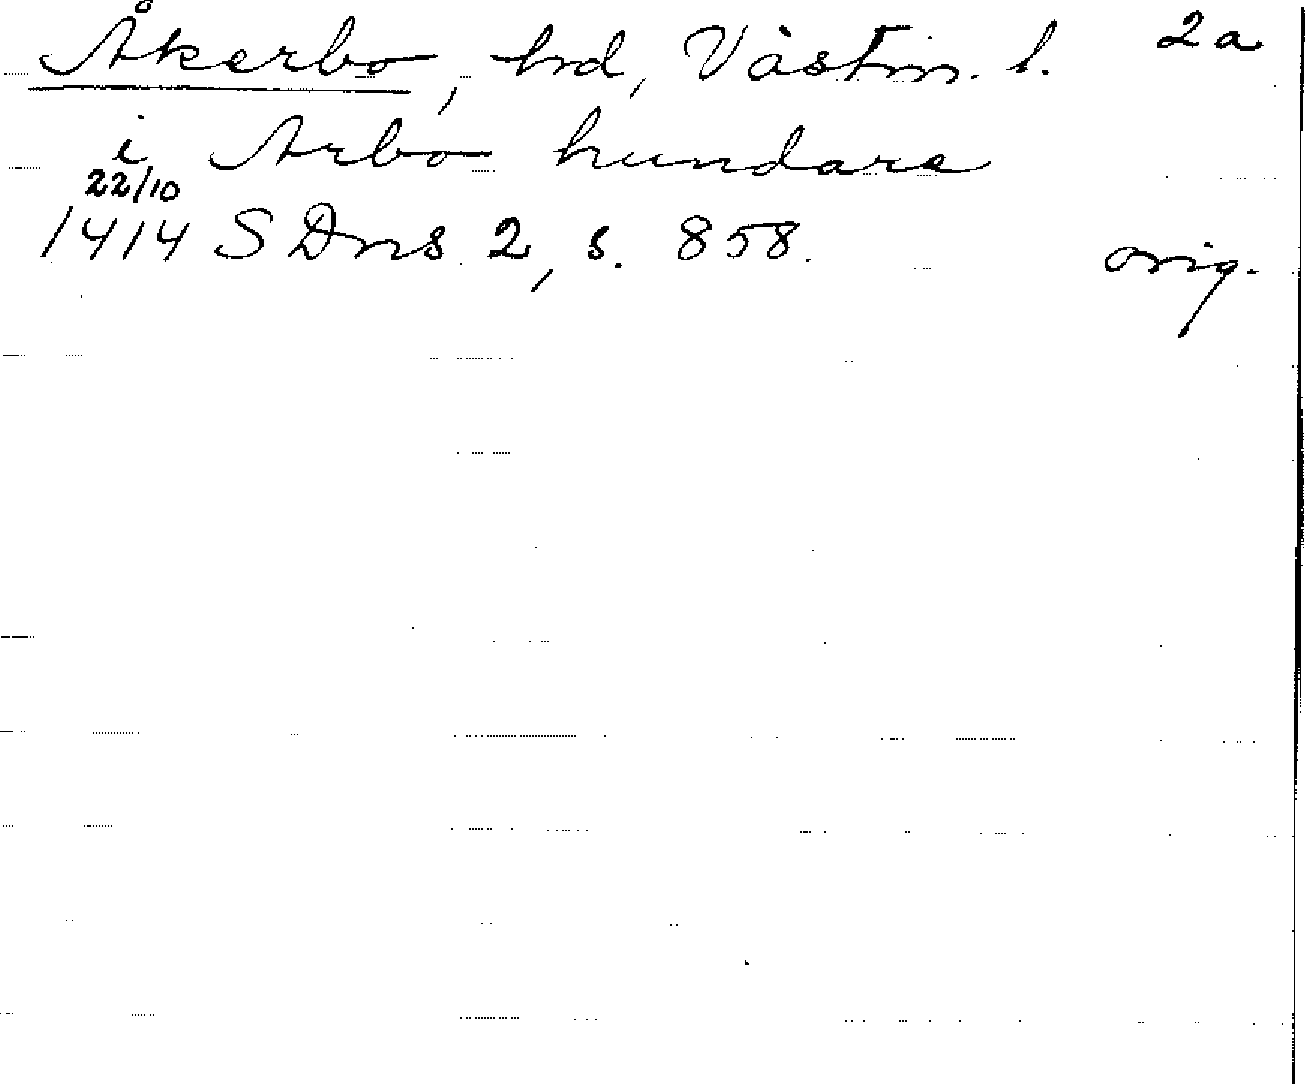 Åkerbo, hrd, Västm. l. 2a
i Arbo hundare
22/10
1414 SDns 2, s. 858. orig.